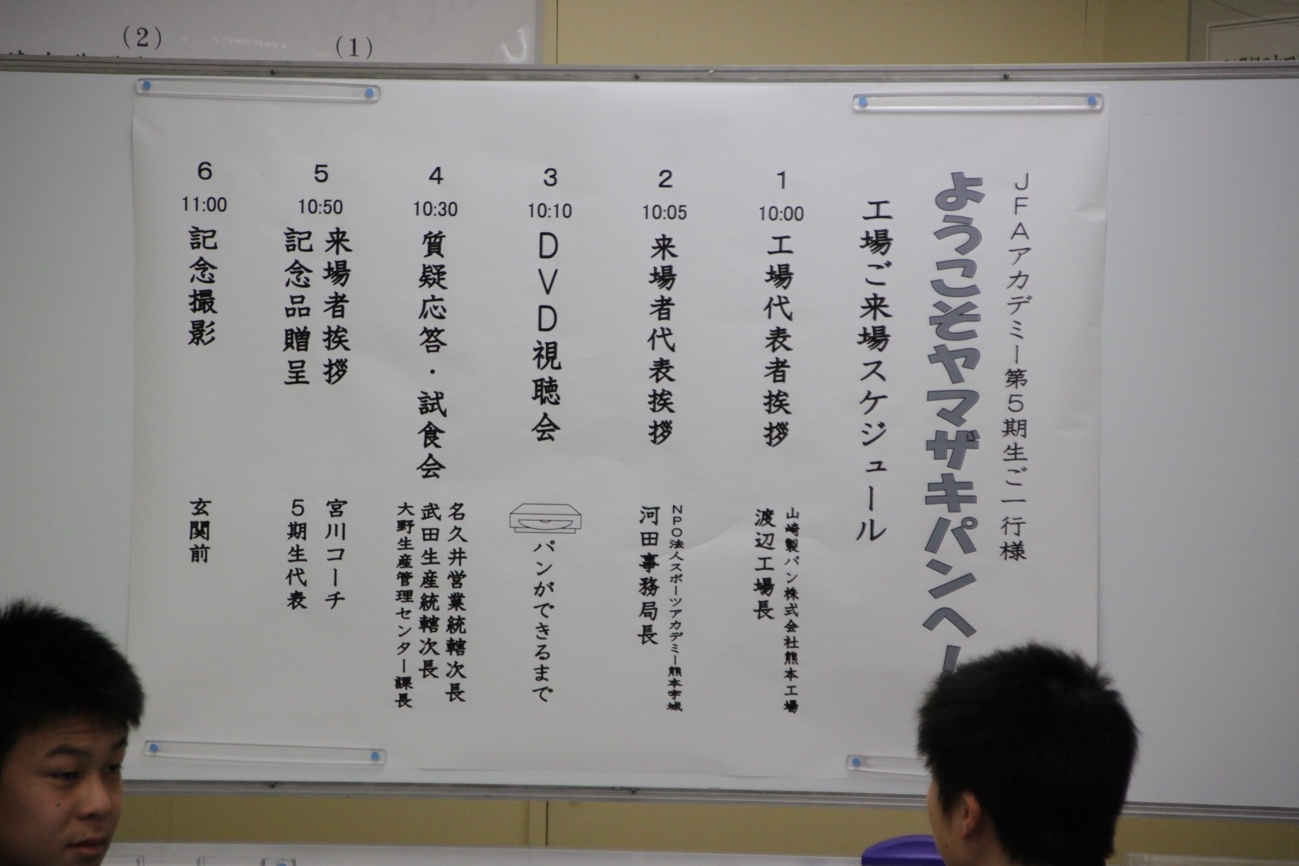 JFAアカデミー第5期生ご一行様
ようこそヤマザキパンへ!
工場ご来場スケジュール
1
10:00
工場代表者挨拶
山崎製パン株式会社熊本工場
渡辺工場長
2
10:05
来場者代表挨拶
NPO法人スポーツアカデミー熊本宇城
河田事務局長
3
10:10
DVD視聴会
パンができるまで
4
10:30
質疑応答・試食会
名久井営業統轄次長
武田生産統轄次長
大野生産管理センター課長
5
10:50
来場者挨拶
宮川コーチ
記念品贈呈
5期生代表
6
11:00
記念撮影
玄関前
(1)
(2)